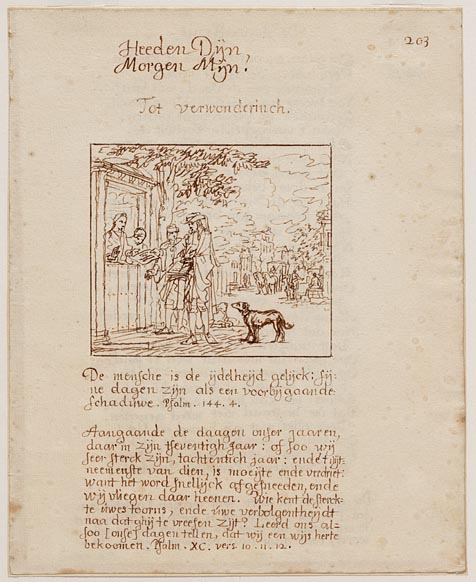 203
Heeden Dijn
Morgen Mijn?
Tot verwonderinch.
De mensche is de ijdelheijd gelijck: sij:
ne dagen zijn als een voorbijgaande
schaduwe. Psalm. 144. 4.
Aangaande de daagen onser jaaren,
daar in zijn tseventigh Jaar: of soo wij
seer sterck zijn, tachtentich jaar: ende
neemenste van dien, is moeijte ende verdriet:
want het word snellijck afgesneeden, ende
wij vliegen daar heenen. Wie kent de sterck-
te uwes toorns, ende uwe verbolgontheijdt
naa dat ghij te vreesen zijt? Leerd ons al-
soo [onse] dagen tellen, dat wij een wijs herte
bekoomen. Psalm. XC. vers. 10. 11. 12.